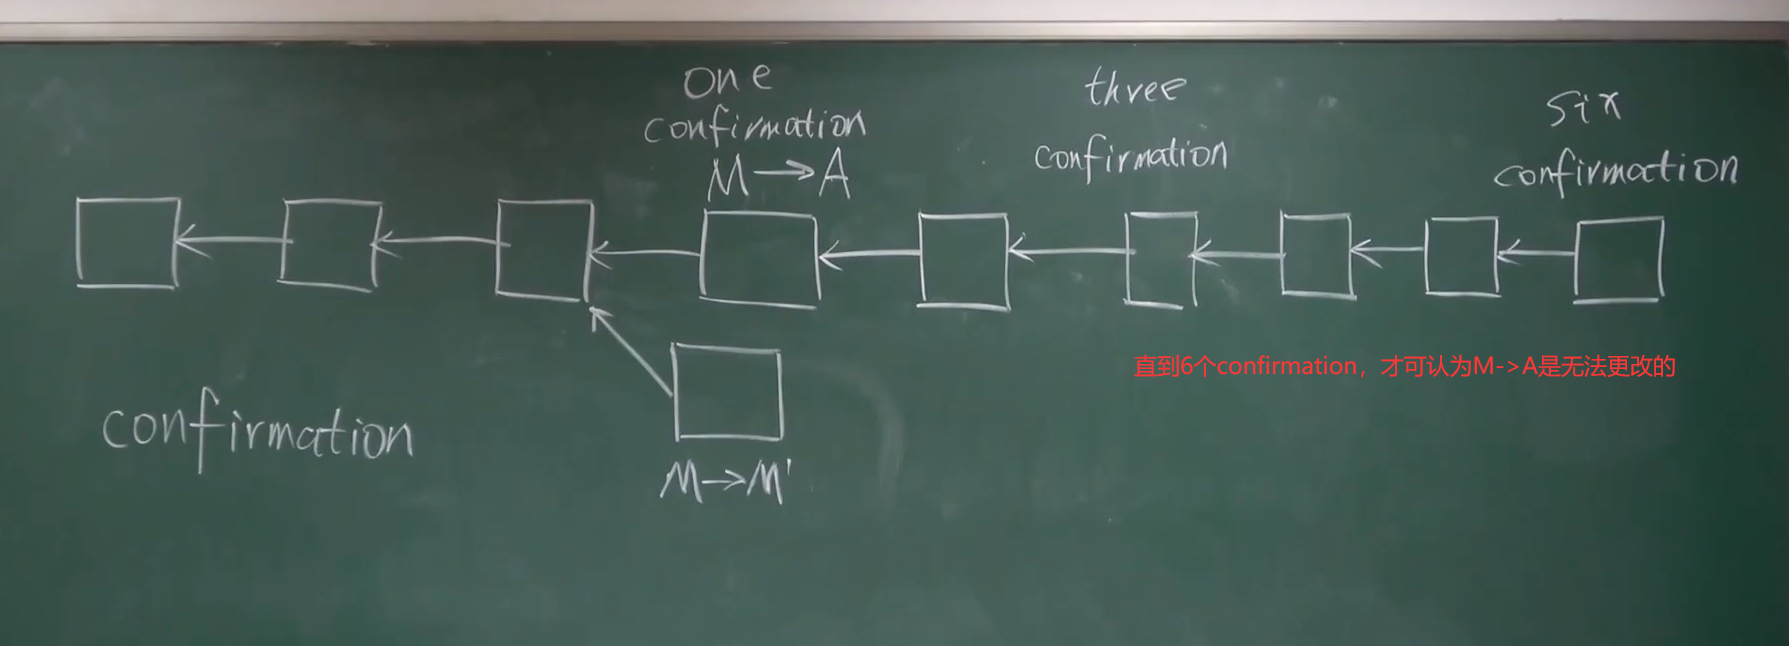 one
confirmation
M→A
three
confirmation
six
confirmation
直到6个confirmation，才可认为M->A是无法更改的
confirmation
M→M'